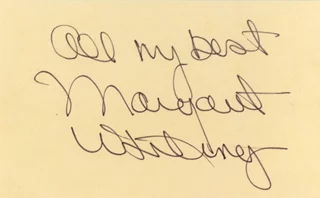 All my best
Margaret
Whiting